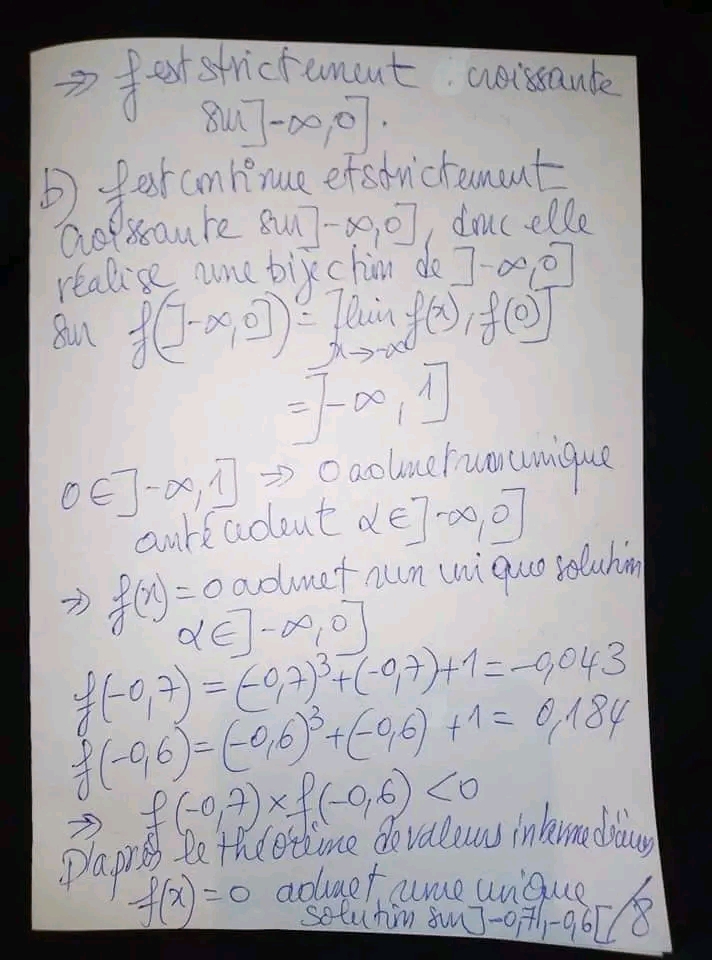 => f est strictement croissante
sur ]-∞,0].
b) f est continue et strictement
croissante sur ]-∞,0], donc elle
réalise une bijection de ]-∞,0]
sur f(]-∞,0]) = ]lim f(x), f(0)]
x→-∞
=]-∞, 1]
0 ∈ ]-∞,1] => 0 admet un unique
antécédent α ∈ ]-∞,0]
=> f(x) = 0 admet un unique solution
α ∈ ]-∞,0]
f(-0,7) = (-0,7)³+(-0,7)+1 = -0,043
f(-0,6) = (-0,6)³+(-0,6) +1 = 0,184
=> f(-0,7) × f(-0,6) <0
D'après le théorème de valeurs intermédiaires
f(x) = 0 admet une unique
solution sur ]-0,7;-0,6[ /8